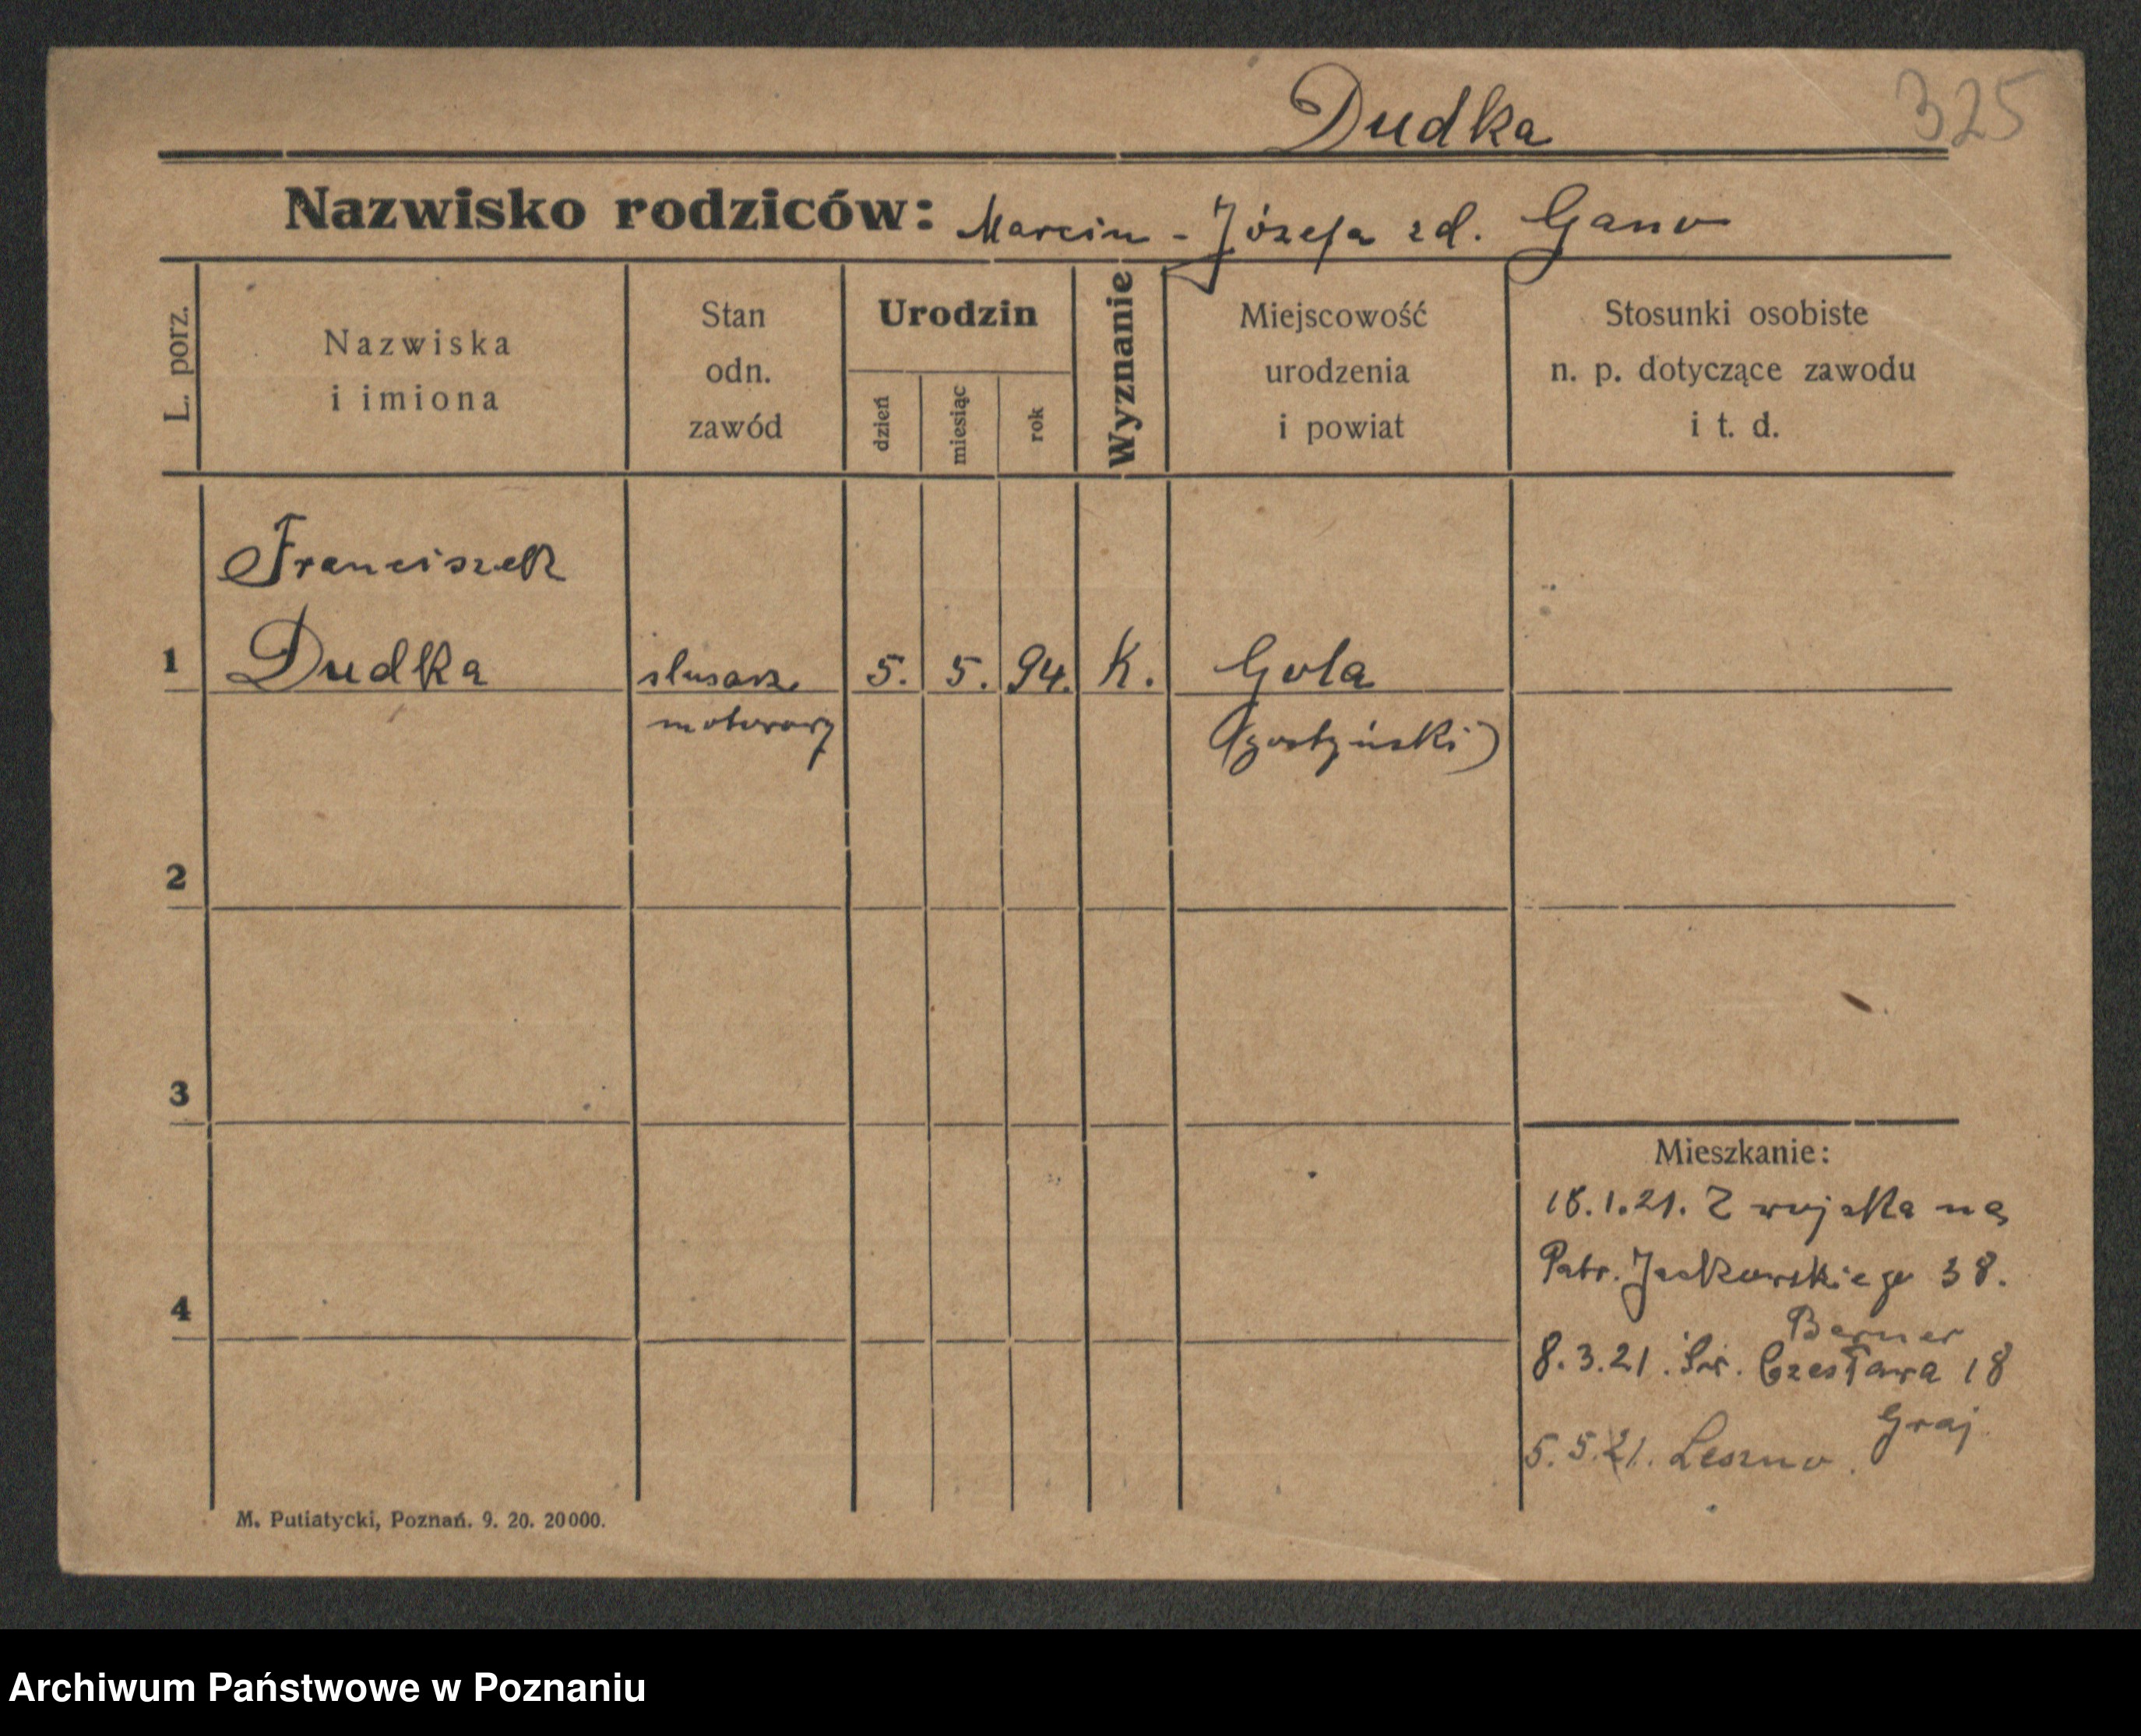 Dudka
325
Nazwisko rodziców: Marcin - Józefa zd. Gano
L. porz.
Nazwiska
i imiona
Stan
odn.
zawód
Urodzin
dzień
miesiąc
rok
Wyznanie
Miejscowość
urodzenia
i powiat
Stosunki osobiste
n. p. dotyczące zawodu
i t. d.
Franciszek
1 Dudka slusarz 5. 5. 94. K. Gola
motorowy (gostyński)
2
3
4
Mieszkanie:
18.1.21. Z wojska na
Patr. Jackowskiego 38.
Berner
8.3.21. Św. Czesława 18
Graj
5.5.21. Leszno.
M. Putiatycki, Poznań. 9. 20. 20000.
Archiwum Państwowe w Poznaniu